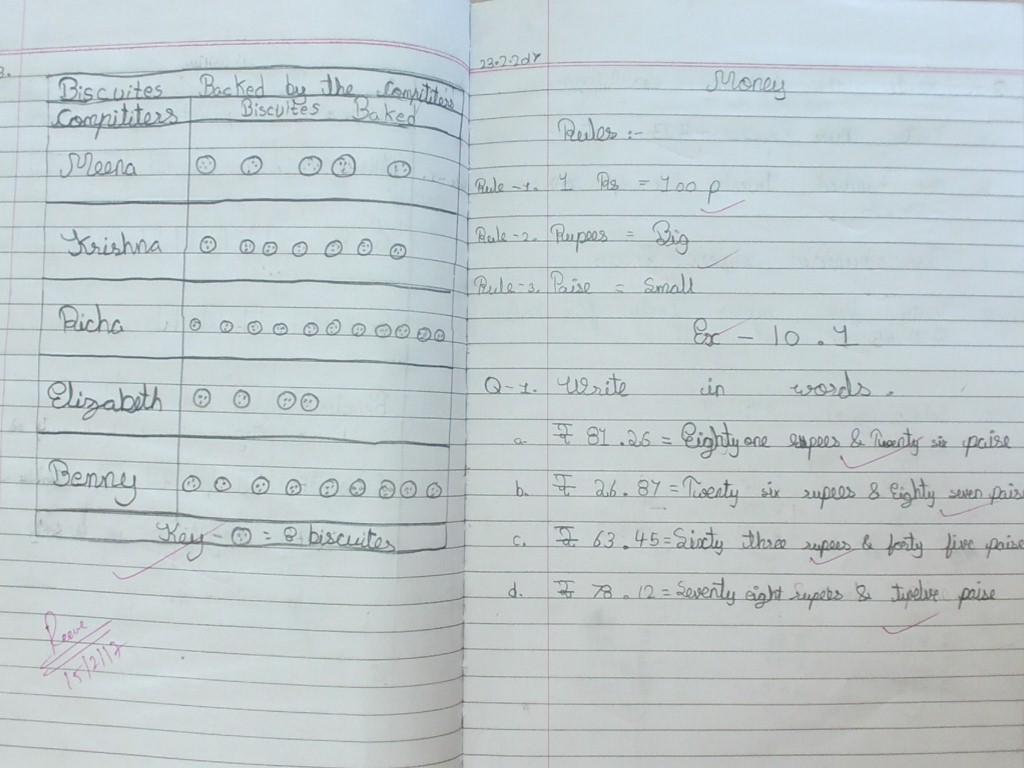 3.
Biscuites Backed by the Compititers
Compititers Biscuites Baked
Meena
Krishna
Richa
Elizabeth
Benny
Key - = 8 biscuites
15/2/17
Money
Rules :-
Rule-1. 1 Rs = 100 p
Rule-2. Rupees = Big
Rule-3. Paise = Small
Ex - 10.1
Q-1. Write in words.
a. ₹ 81.26 = Eighty one rupees & Twenty six paise
b. ₹ 26.87 = Twenty six rupees & Eighty seven paise
c. ₹ 63.45 = Sixty three rupees & forty five paise
d. ₹ 78.12 = Seventy eight rupees & twelve paise